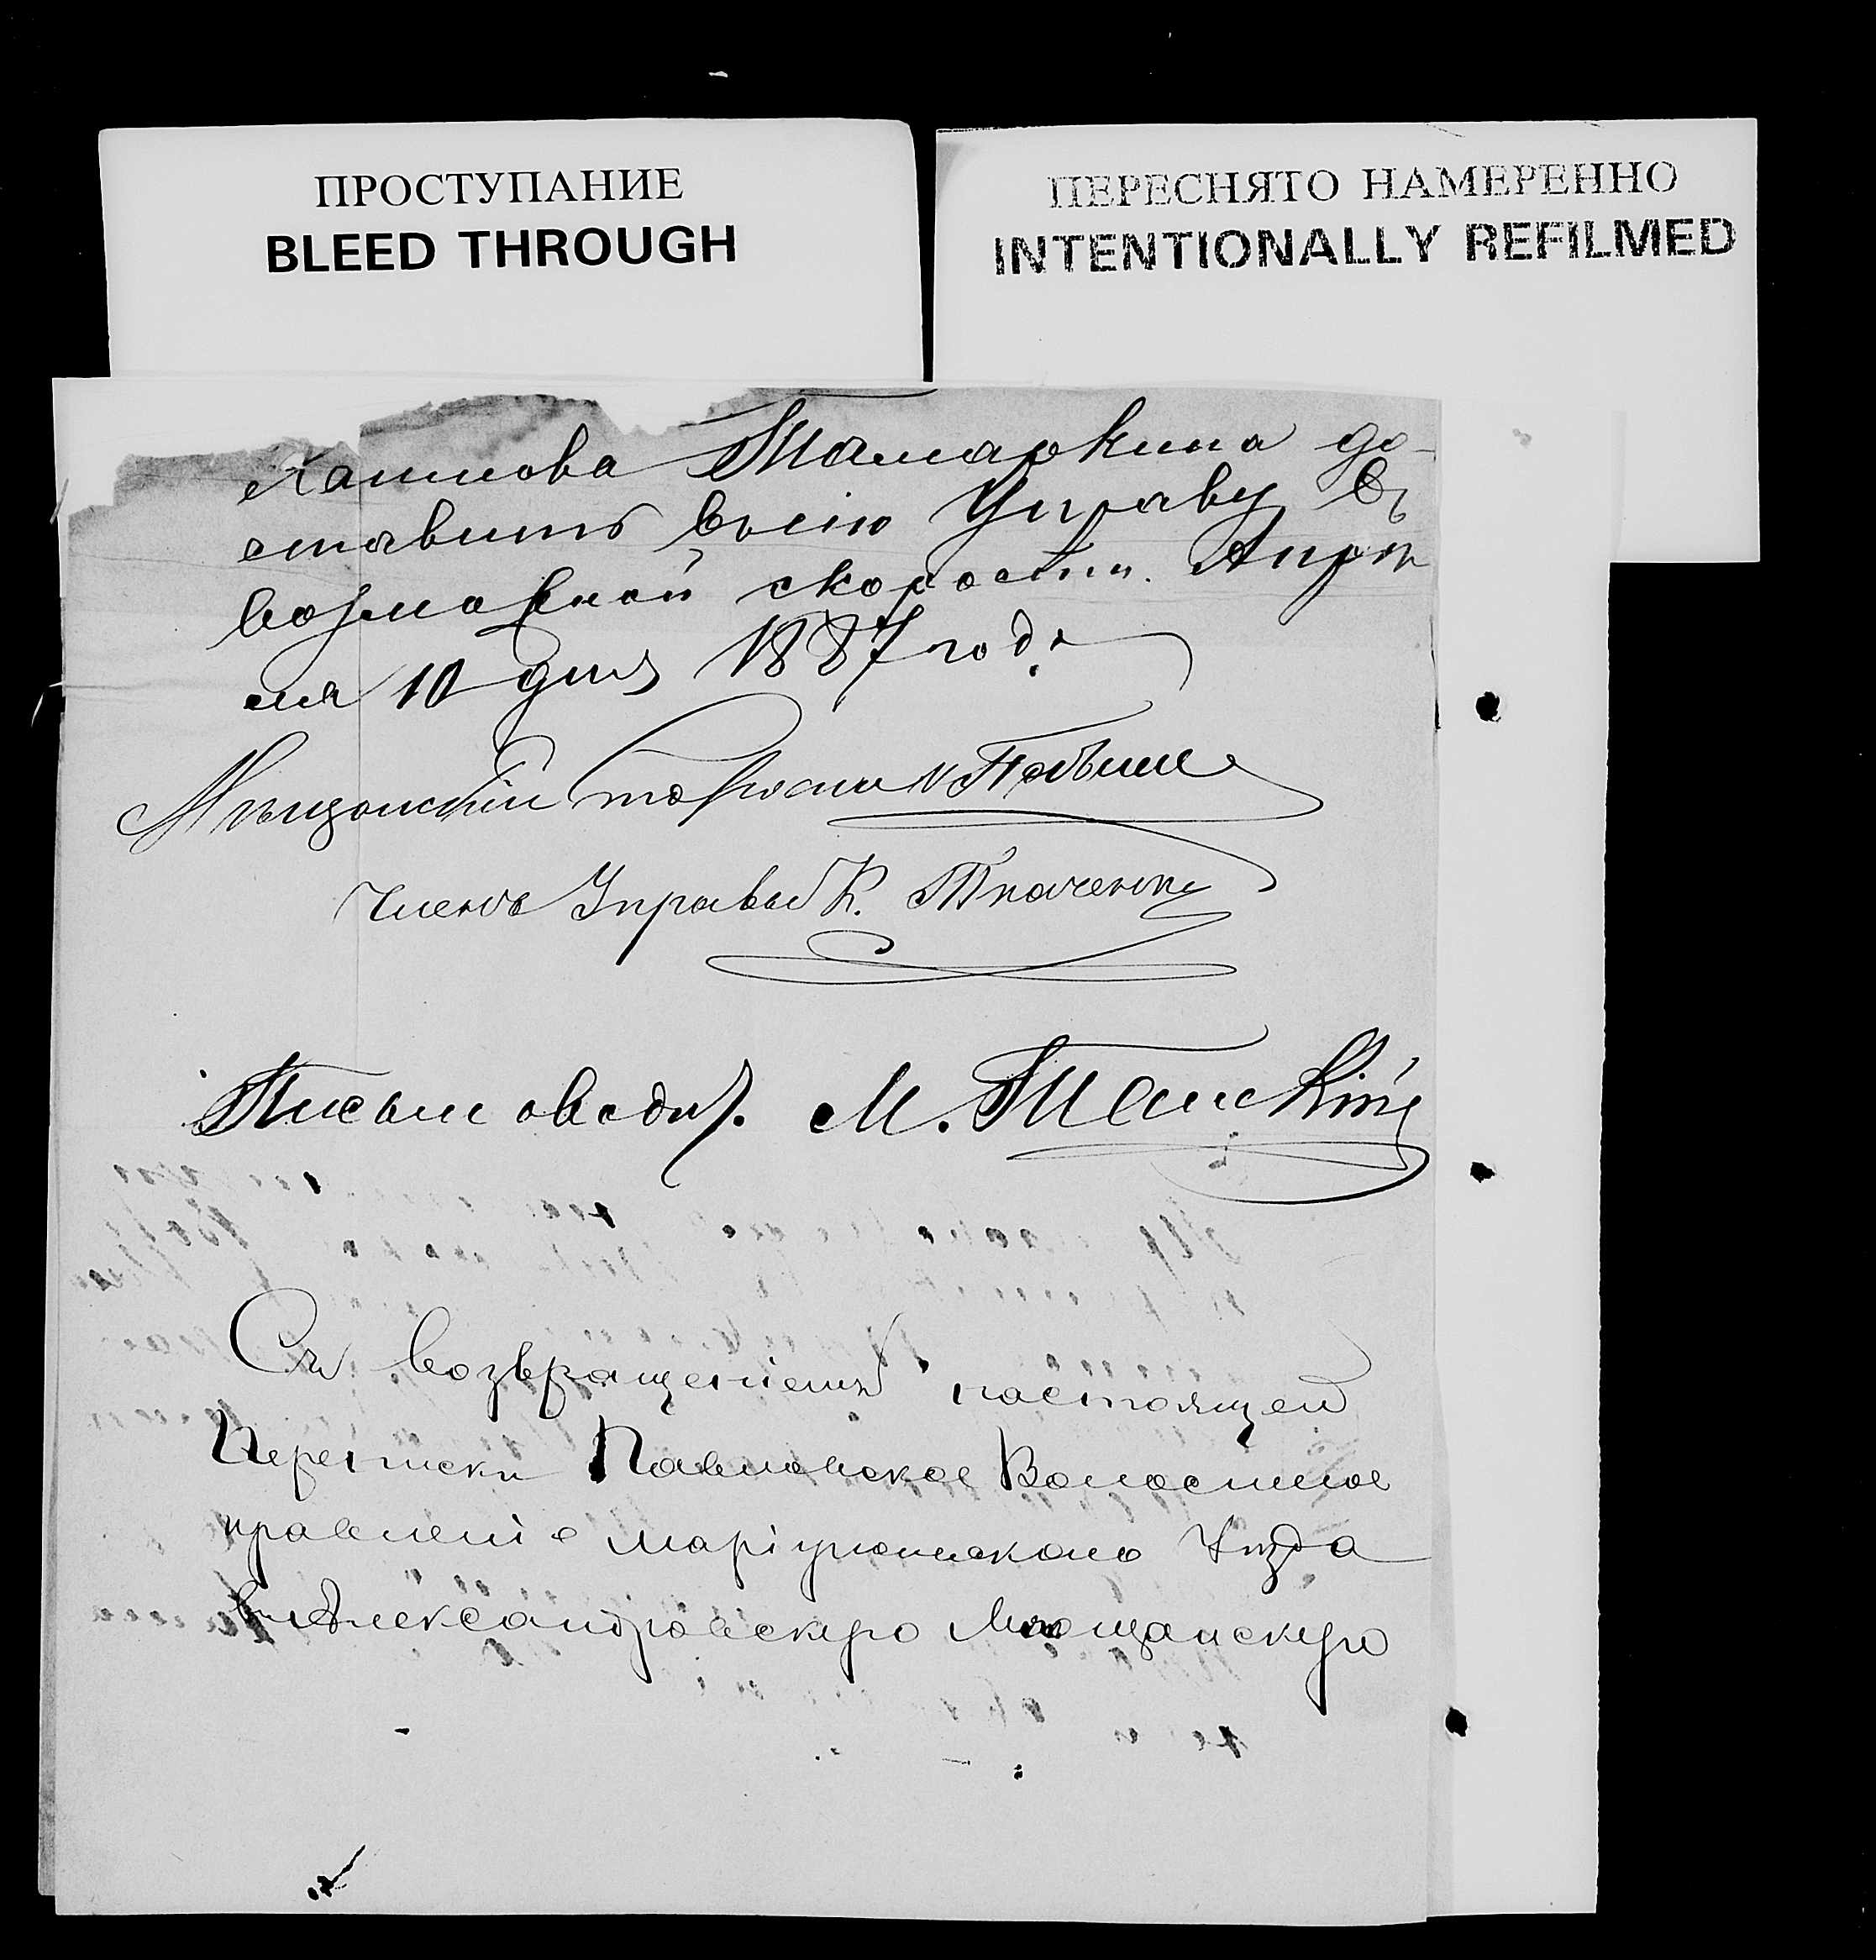 ПРОСТУПАНИЕ
BLEED THROUGH
ПЕРЕСНЯТО НАМЕРЕННО
INTENTIONALLY REFILMED
Хаимова Тамаркина до-
ставить въ сію Управу въ
возможной скорости. Апре
ля 10 дня 1887 года
Мѣщанскій
Членъ Управы К. Ткаченко
Письмоводит. М.
Съ возвращеніемъ настоящей
переписки Павловское Волостное
правленіе маріупольскаго уѣзда
въ Александровскую Мѣщанскую